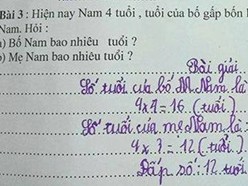 Bài 3 : Hiện nay Nam 4 tuổi , tuổi của bố gấp bốn l
Nam. Hỏi :
) Bố Nam bao nhiêu tuổi ?
) Mẹ Nam bao nhiêu tuổi ?
Bài giải
Số tuổi của bố Nam là
4 x 4 = 16 (tuổi).
Số tuổi của mẹ Nam là :
4 x 3 = 12 (tuổi).
Đáp số : 12 tuổi